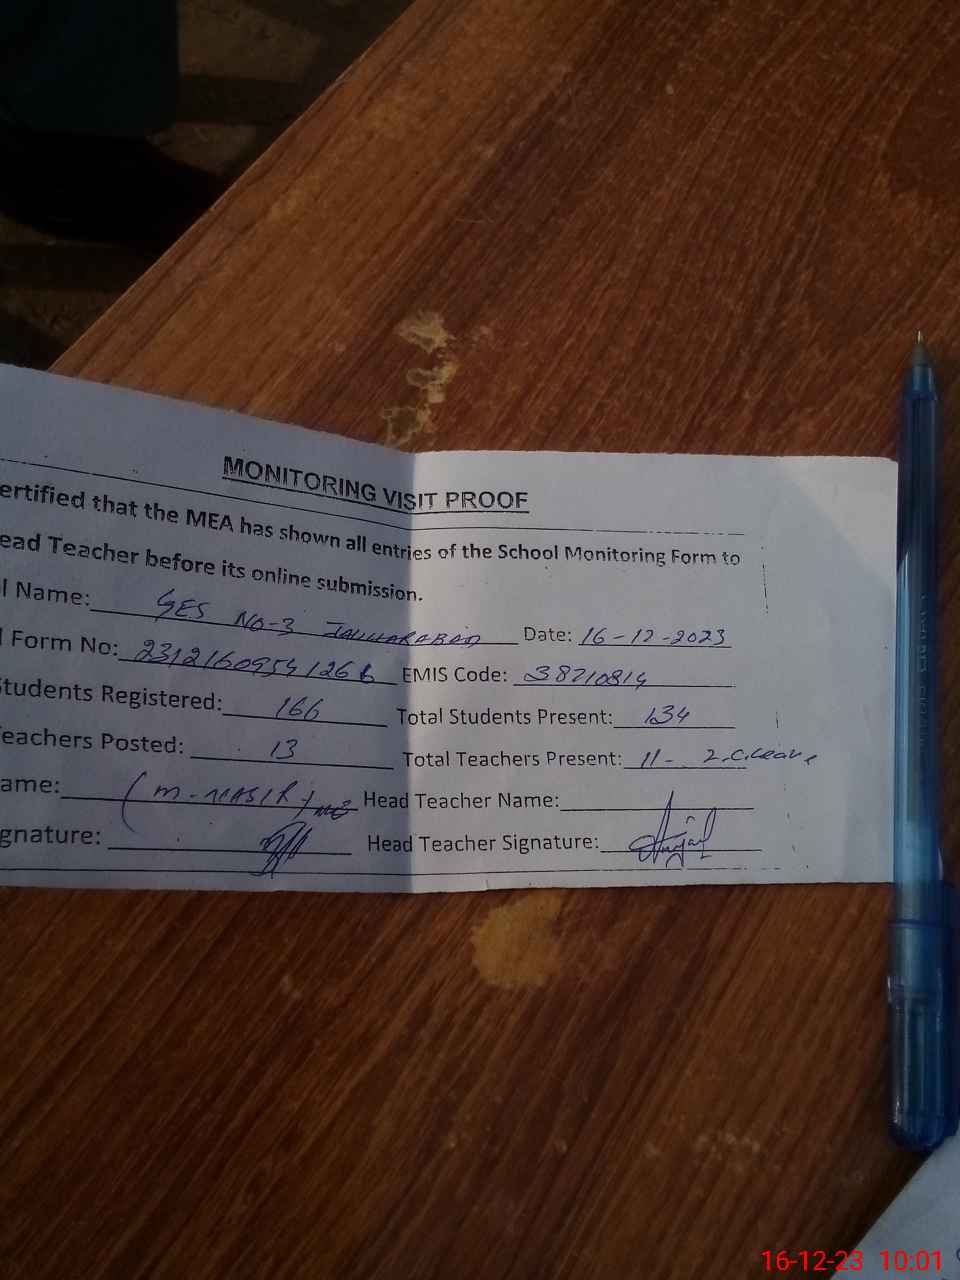 MONITORING VISIT PROOF
ertified that the MEA has shown all entries of the School Monitoring Form to
ead Teacher before its online submission.
l Name: GES NO-3 JAUHARABAD Date: 16-12-2023
Form No: 23121609541266 EMIS Code: 38210814
Students Registered: 166 Total Students Present: 134
eachers Posted: 13 Total Teachers Present: 11 - 2.C.Leave
ame: (M-NASIR) Head Teacher Name:
gnature: Head Teacher Signature:
16-12-23 10:01